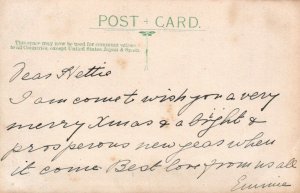 POST CARD.
This space may now be used for communication
to all Countries, except United States, Japan & Spain.
Dear Hettie
I am come t wish you a very
merry Xmas & a bright &
prosperous new year when
it come Best love from us all
Emme